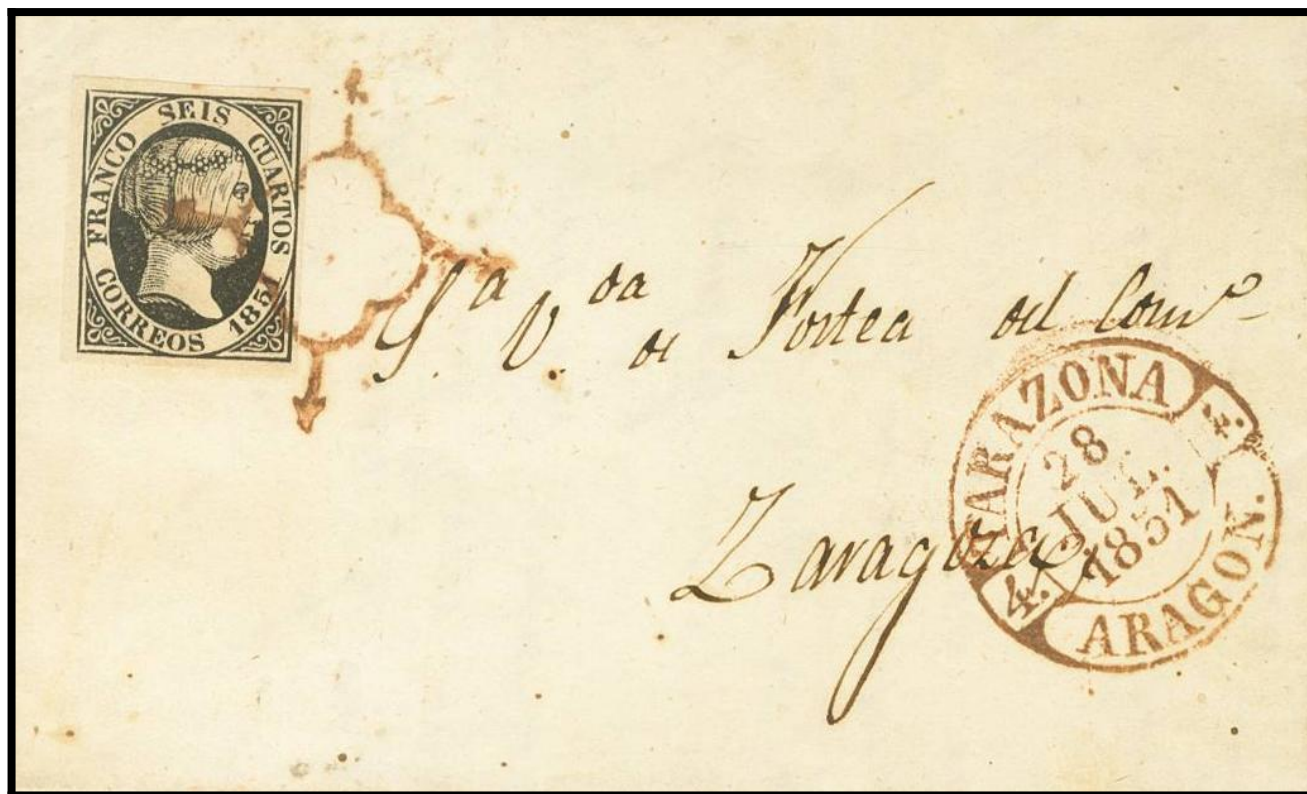 FRANCO SEIS CUARTOS
CORREOS 1851
S.ª V.da de Fortea del Comº
Zaragoza
TARAZONA
28
JUL.
1851
4. 4.
ARAGON.